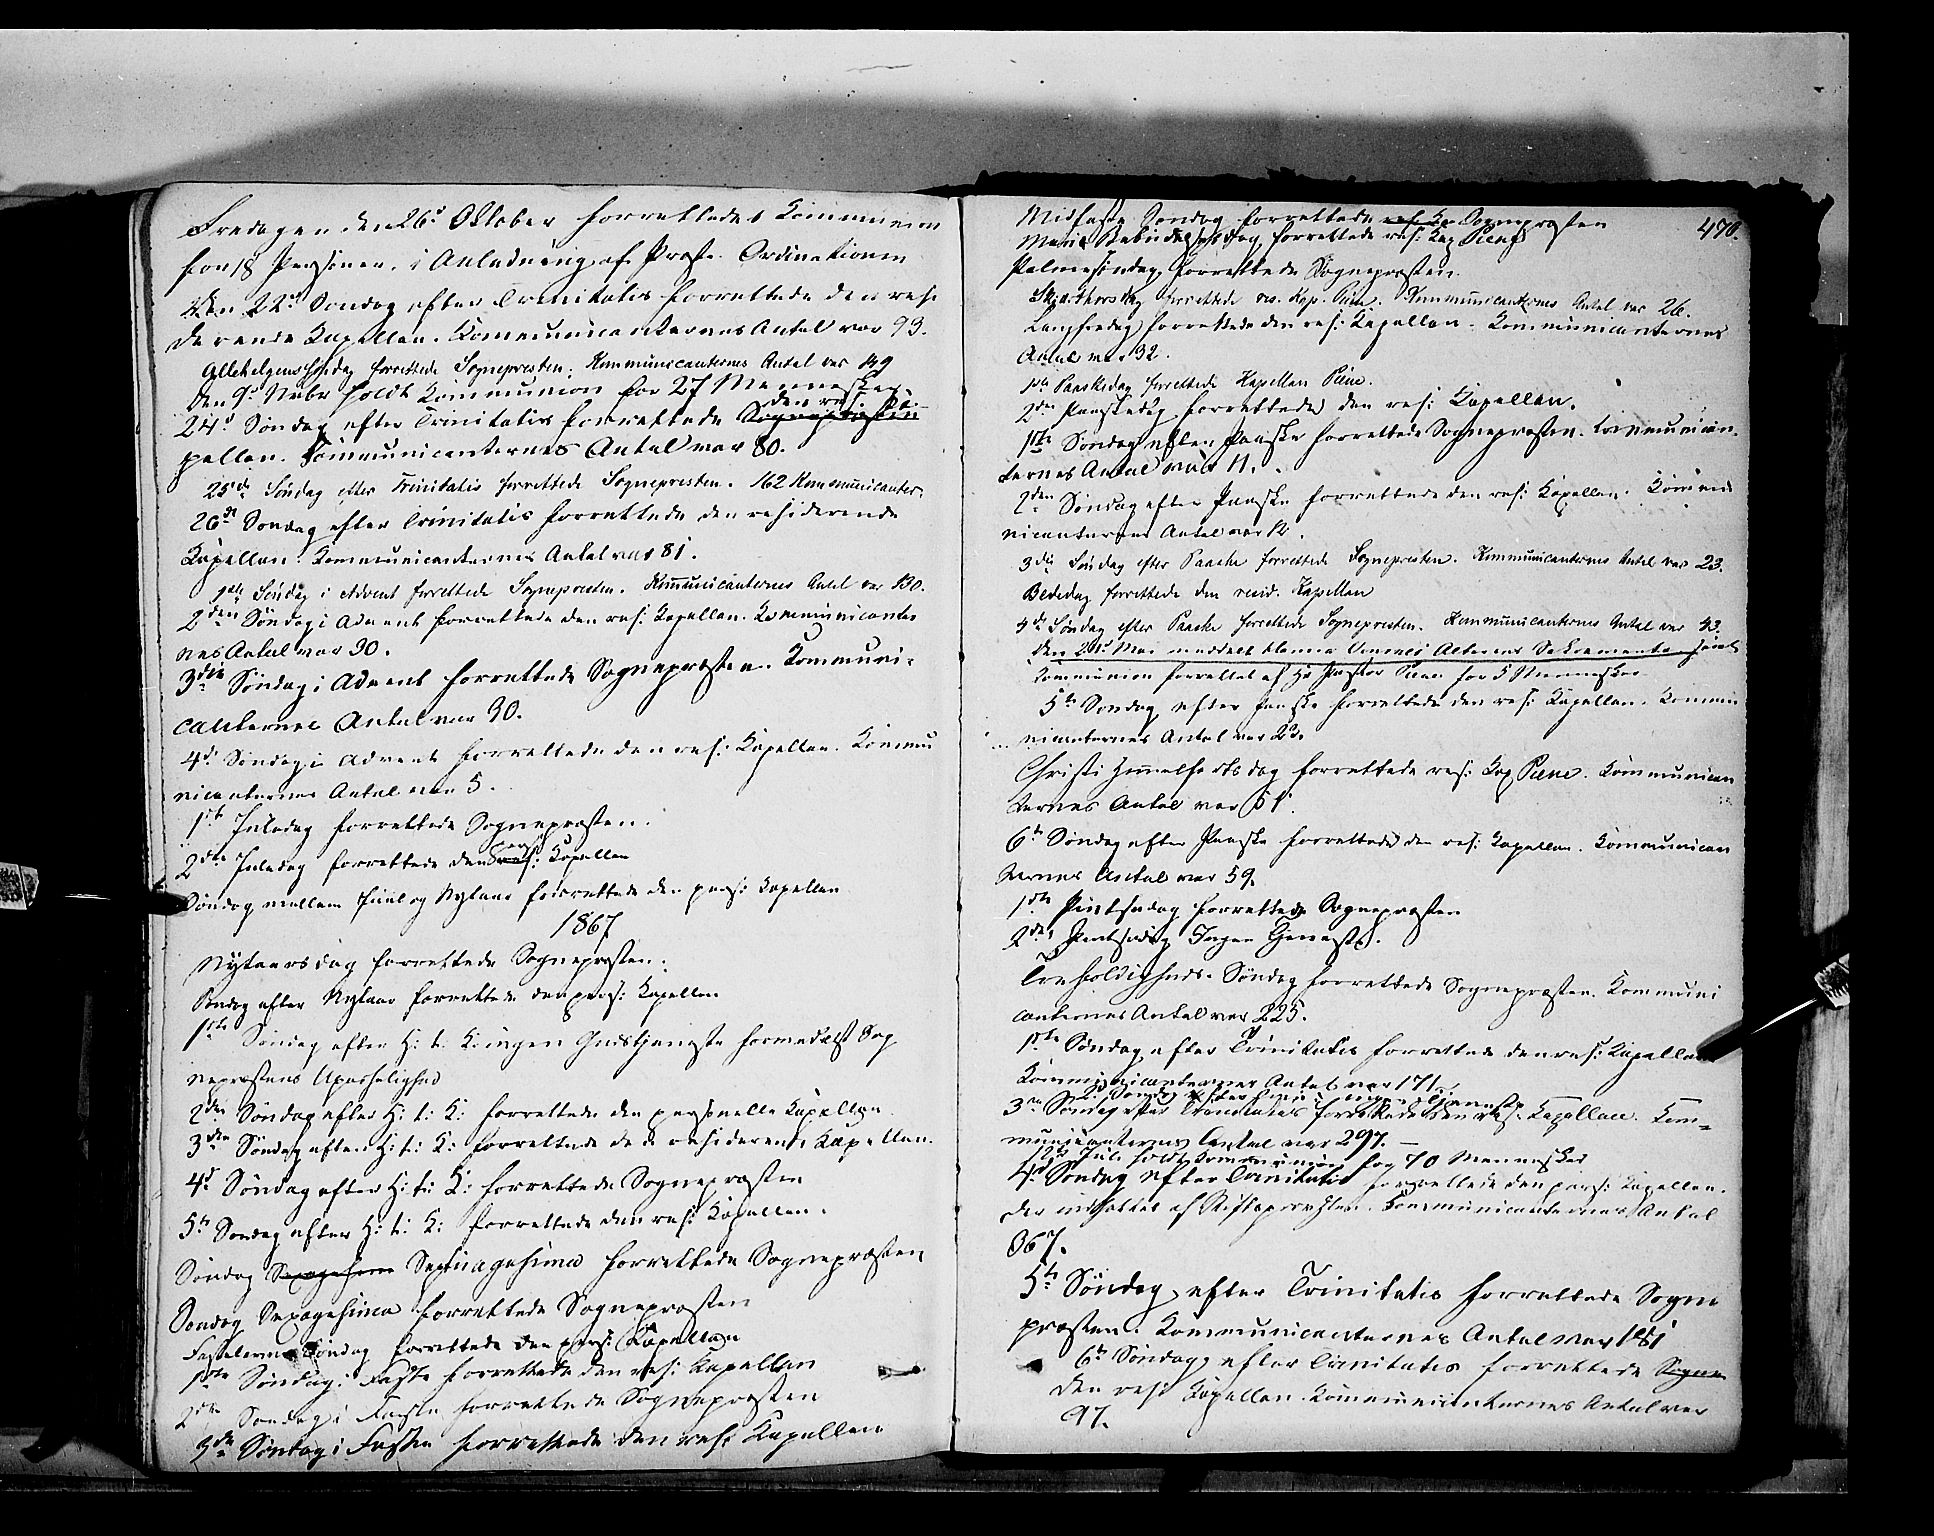 Fredagen den 26d Oktober forrettedes Kommunion
for 18 Personer, i Anledning af Præste Ordinationen
den 22d Søndag efter Trinitatis forrettede den resi
derende Kapellan. Kommunicanternes Antal var 93.
Allehelgenssøndag forrettede Sognepresten. Kommunicanternes Antal var 149
Den 9d Novbr holdt Kommunion for 27 Mennesker.
den res. Ka-
24d Søndag efter Trinitatis forrettede Sognepræsten
pellan. Kommunicanternes Antal var 80.
25de Søndag efter Trinitatis forrettede Sognepresten. 162 Kommunicanter.
26de Søndag efter Trinitatis forrettede den residerende
Kapellan. Kommunicanternes Antal var 81.
1ste Søndag i Advent forrettede Sognepresten. Kommunicanternes Antal var 130.
2den Søndag i Advent forrettede den res: Kapellan. Kommunicanter
nes Antal var 30.
3die Søndag i Advent forrettede Sognepræsten. Kommuni-
canternes Antal var 30.
4d Søndag i Advent forrettede den res: Kapellan. Kommu
nicanternes Antal var 5.
1ste Juledag forrettede Sognepræsten.
pers
2den Juledag forrettede den res: Kapellan
Søndag mellem Juul og Nytaar forrettede den pers: Kapellan
1867
Nytaarsdag forrettede Sognepræsten.
Søndag efter Nytaar forrettede den pers: Kapellan
1ste Søndag efter H: t: K: ingen Gudstjeneste formedelst Sog
nepræstens Upasselighed
2den Søndag efter H: t: K: forrettede den personelle Kapellan
3die Søndag efter H: t: K: forrettede den residerende Kapellan.
4d Søndag efter H: t: K: forrettede Sognepræsten
5te Søndag efter H: t: K: forrettede den res: Kapellan.
Søndag Sexagesima Septuagesima forrettede Sognepræsten
Søndag Sexagesima forrettede Sognepræsten
Fastelavns Søndag forrettede den pers: Kapellan
1ste Søndag i Faste forrettede den res: Kapellan
2den Søndag i Faste forrettede Sognepræsten
3die Søndag i Fasten forrettede den res: Kapellan
470.
Midfaste Søndag forrettede res: Ka Sognepræsten
Marie Bebudelsesdag forrettede res: Kap Piene
Palmesøndag forrettede Sognepræsten.
Skjærthorsdag forrettede res. Kap. Piene. Kommunicanternes Antal var 26.
Langfredag forrettede den res: Kapellan. Kommunicanternes
Antal var 32.
1ste Paaskedag forrettede Kapellan Piene.
2den Paaskedag forrettede den res: Kapellan.
1ste Søndag efter Paaske forrettede Sognepræsten. Kommunican-
ternes Antal var 11.
2den Søndag efter Paaske forrettede den res: Kapellan. Kommu
nicanternes Antal var 12.
3die Søndag efter Paaske forrettede Sognepresten. Kommunicanternes Antal var 23.
Bededag forrettede den resid. Kapellan
4de Søndag efter Paaske forrettede Sognepresten. Kommunicanternes Antal var 43.
den Mai meddelt Alterens Sakramente
Kommunion forrettet af Hr Pastor Piene for 5 Mennesker
5te Søndag efter Paaske forrettede den res: Kapellan. Kommu
nicanternes Antal var 22.
Christi Himmelfartsdag forrettede res: Kap Piene. Kommunican
ternes Antal var 51.
6te Søndag efter Paaske forrettede den res: Kapellan. Kommunican
ternes Antal var 59.
1ste Pintsedag forrettede Sognepræsten
2den Pintsedag Ingen Tjeneste.
Treholdigheds-Søndag forrettede Sognepræsten. Kommuni
canternes Antal var 225.
1ste Søndag efter Trinitatis forrettede den res: Kapellan
Kommunicanternes Antal var 171.
2den Søndag efter Trini: ingen Tjeneste
3die Søndag efter Trinitatis forrettede den res: Kapellan. Kom-
municanternes Antal var 297.
12te Juli holdt Kommunion for 70 Mennesker
4de Søndag efter Trinitatis forrettede den pers: Kapellan.
der indsattes af Stiftsprovsten. Kommunicanternes Antal
367.
5te Søndag efter Trinitatis forrettede Sogne
præsten. Kommunicanternes Antal var 181
6te Søndag efter Trinitatis forrettede Sogne
den resi Kapellan. Kommunicanternes Antal var
97.